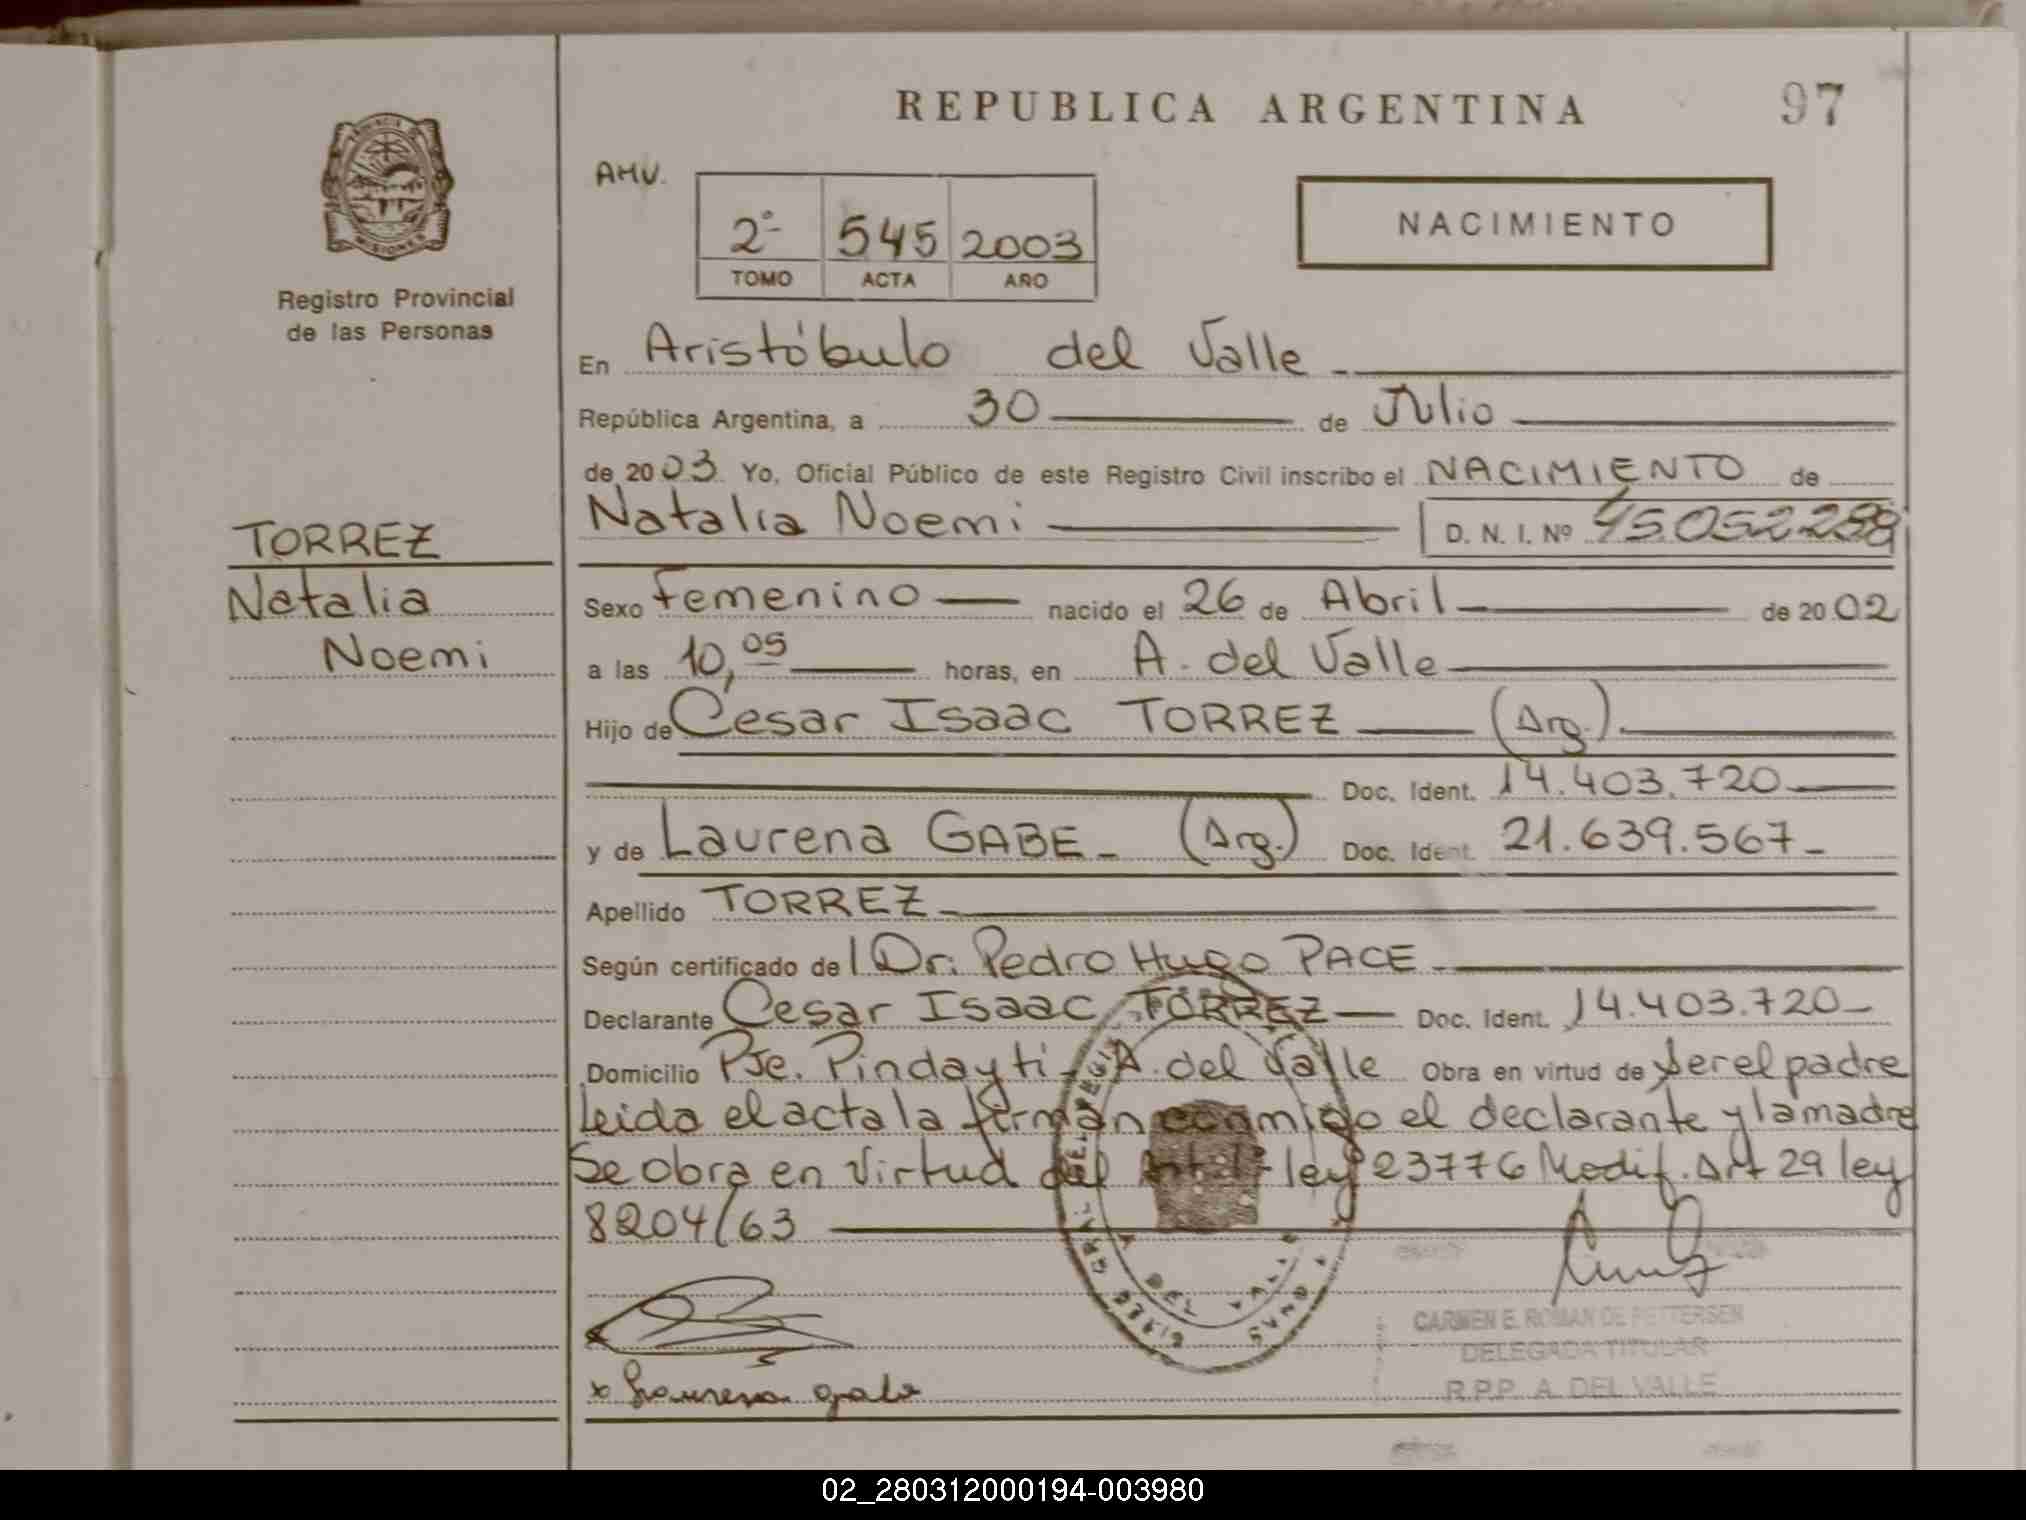 REPUBLICA ARGENTINA 97
PROVINCIA DE MISIONES
Registro Provincial
de las Personas
AMV.
2º 545 2003
TOMO ACTA AÑO
NACIMIENTO
En Aristóbulo del Valle
República Argentina, a 30 de Julio
de 2003 Yo, Oficial Público de este Registro Civil inscribo el NACIMIENTO de
Natalia Noemi D. N. I. Nº 45.052.288
TORREZ
Natalia
Noemi
Sexo Femenino nacido el 26 de Abril de 2002
a las 10,05 horas, en A. del Valle
Hijo de Cesar Isaac TORREZ (Arg.)
Doc. Ident. 14.403.720
y de Laurena GABE (Arg.) Doc. Ident. 21.639.567
Apellido TORREZ
Según certificado del Dr. Pedro Hugo PACE
Declarante Cesar Isaac TORREZ Doc. Ident. 14.403.720
Domicilio Pje. Pindayti - A. del Valle Obra en virtud de ser el padre
Leida el acta la firman conmigo el declarante y la madre
Se obra en virtud del Art 1- ley 23776 Modif. Art 29 ley
8204/63
x Laurena gabe
CARMEN E. ROMAN DE PETTERSEN
DELEGADA TITULAR
R.P.P. A. DEL VALLE
02_280312000194-003980